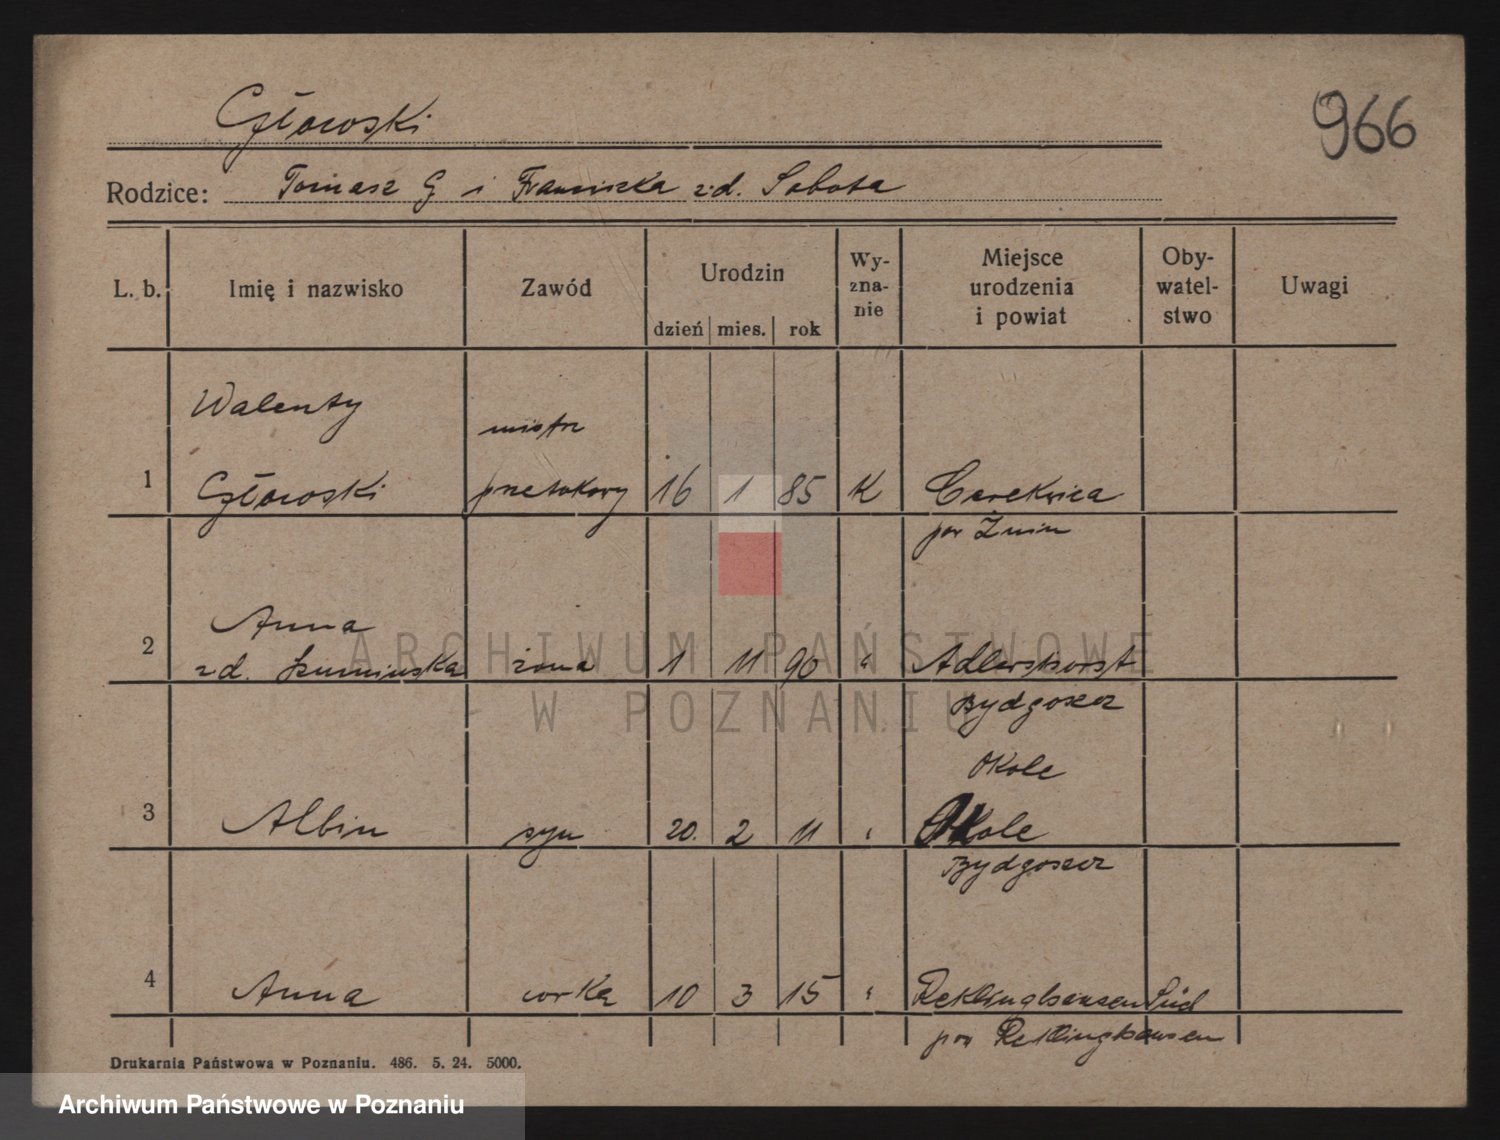 Człowski
966
Rodzice: Tomasz C i Franciszka z.d. Sobota
L. b.
Imię i nazwisko
Zawód
Urodzin
dzień mies. rok
Wy-
zna-
nie
Miejsce
urodzenia
i powiat
Oby-
watel-
stwo
Uwagi
Walenty
mistrz
1 Człowski przetokowy 16 1 85 K Cerekwica
pow Żnin
Anna
2 zd. żona 1 11 90 " Adlershorst
Bydgoszcz
Okole
3 Albin syn 20. 2 11 " Okole
Bydgoszcz
4 Anna corka 10 3 15 " Reklinghausen Süd
pow Reklinghausen
Drukarnia Państwowa w Poznaniu. 486. 5. 24. 5000.
ARCHIWUM PAŃSTWOWE
W POZNANIU
Archiwum Państwowe w Poznaniu